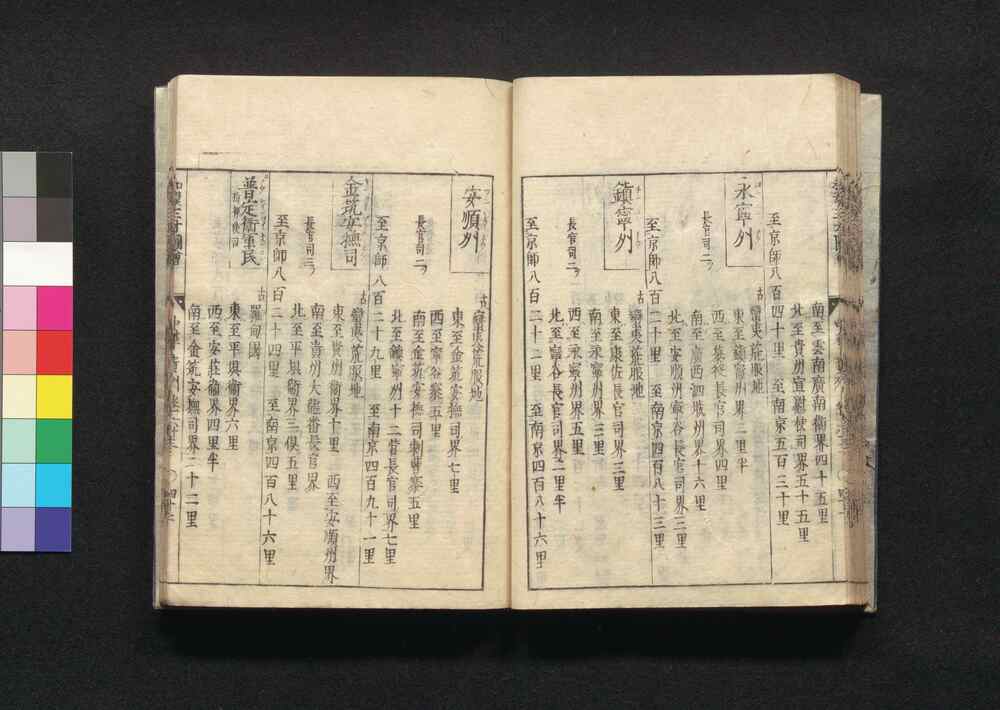 南至雲南廣南衛界四十五里
北至貴州宣慰使司界五十五里
至京師八百四十里 至南京五百三十里
永寧州
古蠻夷荒服地
長官司二ツ
東至鎮寧州界二里半
西至募役長官司界四里
南至廣西泗城州界十六里
北至安順州寧谷長官司界三里
至京師八百二十里 至南京四百八十三里
鎮寧州
古蠻夷荒服地
東至康佐長官司界三里
長官司二ツ
南至永寧州界三里
西至永寧州界五里
北至寧谷長官司界二里半
至京師八百二十二里 至南京四百八十六里
安順州
古蠻夷荒服地
東至金筑安撫司界七里
西至寧谷寨五里
長官司二ツ
南至金筑安撫司刺寨五里
北至鎮寧州十二營長官司界七里
至京師八百二十九里 至南京四百九十一里
金筑安撫司
古蠻夷荒服地
東至貴州衛界十里 西至安順州界
長官司三ツ
南至貴州大龍番長官界
北至平壩衛界三俱五里
至京師八百二十四里 至南京四百八十六里
普定衛軍民
指揮使司
古羅甸國
東至平壩衛界六里
西至安莊衛界四里半
南至金筑安撫司界二十二里